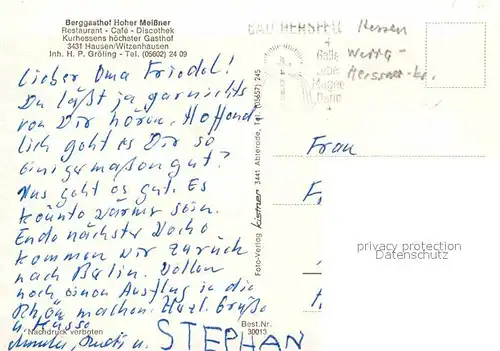 Berggasthof Hoher Meißner
Restaurant - Café - Discothek
Kurhessens höchster Gasthof
3431 Hausen/Witzenhausen
Inh. H. P. Gröling - Tel. (05602) 24 09
Lieber Oma Friedel!
Du läßt ja garnichts
von Dir hören. Hoffend
lich geht es Dir so
einigermaßen gut?
Uns geht es gut. Es
könnte wärmer sein.
Ende nächster Woche
kommen wir zurück
nach Berlin. Wollen
noch einen Ausflug in die
Rhön machen. Herzl. Grüße
u. Küsse
Nachdruck verboten
u. STEPHAN
Best.Nr.
30013
Foto-Verlag kistner 3441 Abterode, Tel. (05657) 245
BAD HERSFELD
Hessen
Werra-
Meissner-Kr.
Frau
F.
privacy protection
VARIOUS